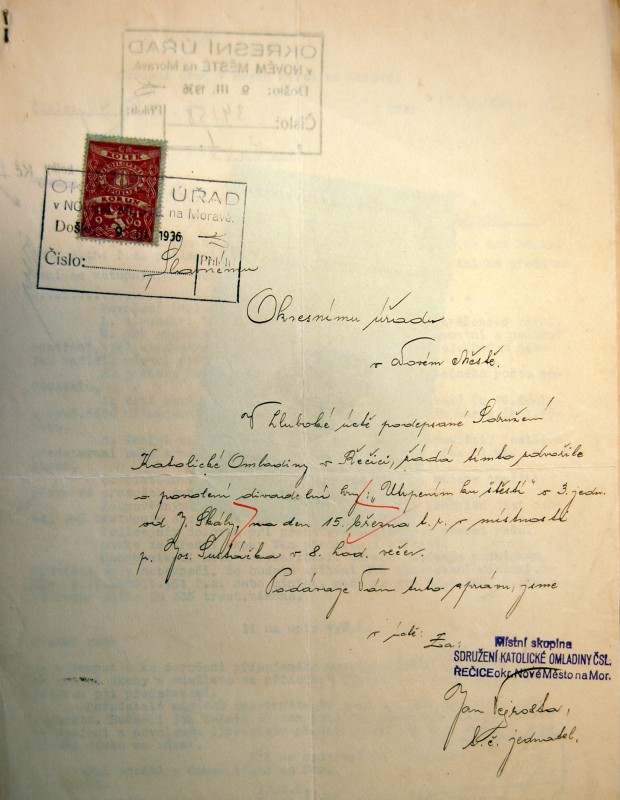 OKRESNÍ ÚŘAD
v NOVÉM MĚSTĚ na Moravě.
Došlo: 9 III. 1936
Číslo:
KOLEK
KORUN
ÚŘAD
v NOV na Moravě.
Došlo 9 1936
Číslo: Příl.
Slavnému
Okresnímu úřadu
v Novém Městě.
V hluboké úctě podepsané Sdružení
Katolické Omladiny v Řečici, žádá tímto zdvořile
o povolení divadelní hry: „Utrpením ku štěstí" o 3. jedn.
od J. Skály, na den 15. března t. r. v místnosti
p. Jos. Šustáčka v 8. hod. večer.
Podávaje Vám tuto zprávu, jsme
v úctě: Za:
Místní skupina
SDRUŽENÍ KATOLICKÉ OMLADINY ČSL.
ŘEČICE okr. Nové Město na Mor.
Jan
t. č. jednatel.